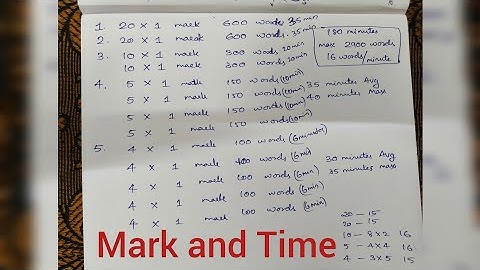 1. 20 × 1 mark 600 words 35 min
2. 20 × 1 mark 600 words. 35 min
3. 10 × 1 mark 300 words 20 min
10 × 1 mark 300 words 20 min
180 minutes
max 2900 words
16 words/minute
4. 5 × 1 mark 150 words (10 min)
5 × 1 mark 150 words (10 min) 35 minutes Avg
5 × 1 mark 150 words (10 min) 40 minutes max
5 × 1 mark 150 words (10 min)
5. 4 × 1 mark 100 words (6 minutes)
4 × 1 mark 100 words (6 min) 30 minutes Avg
4 × 1 mark 100 words (6 min) 35 minutes max
4 × 1 mark 100 words (6 min)
4 × 1 mark 100 words (6 min)
20 – 15
20 – 15
10 – 8 × 2 16
5 – 4 × 4 16
4 – 3 × 5 15
Mark and Time